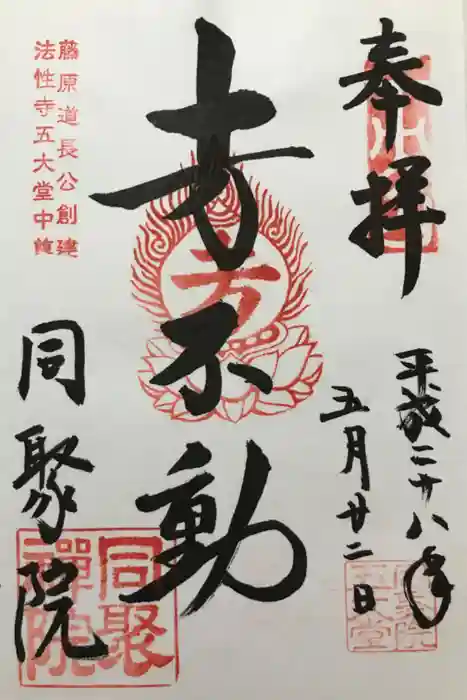 奉拝
平成二十八年
五月廿二日
不動
藤原道長公創建
法性寺五大堂中
同聚院
同聚
禪院
五大堂